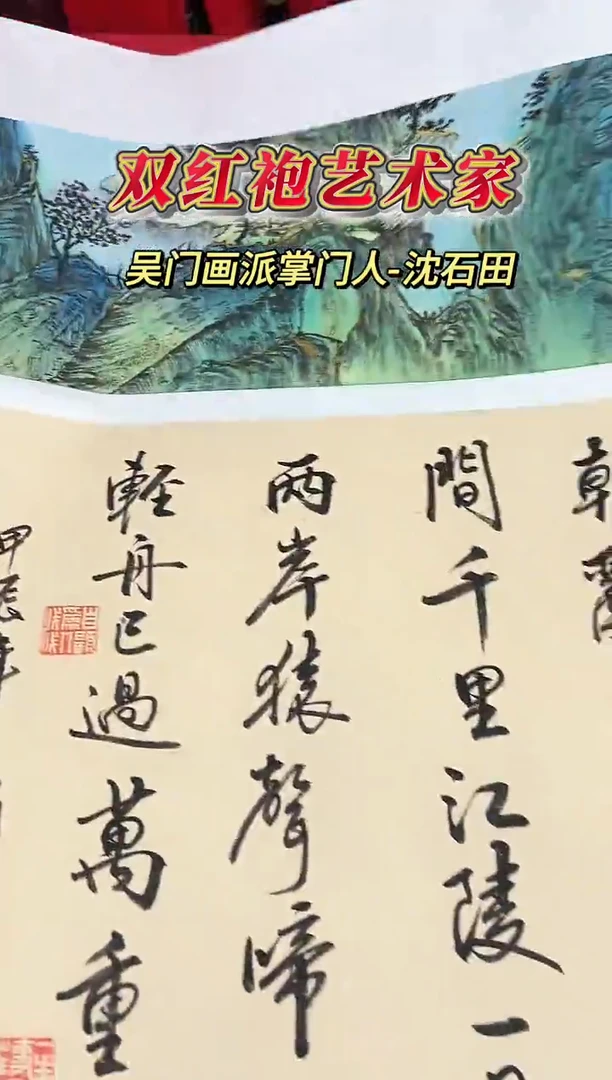 双红袍艺术家
吴门画派掌门人-沈石田
間千里江陵一
两岸猿聲啼
輕舟已過萬重
甲辰年